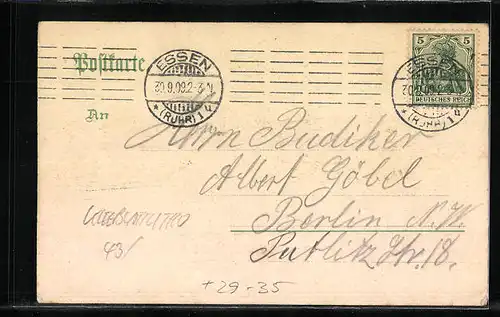 Postkarte
An
ESSEN
30.9.09.2-3N
* (RUHR) 1 q
5 5
DEUTSCHES REICH
ESSEN
* (RUHR) 1 q
Herrn Budiker
Albert Göbel
Berlin N.W.
Putlitz Str. 18.
43/
+29-35